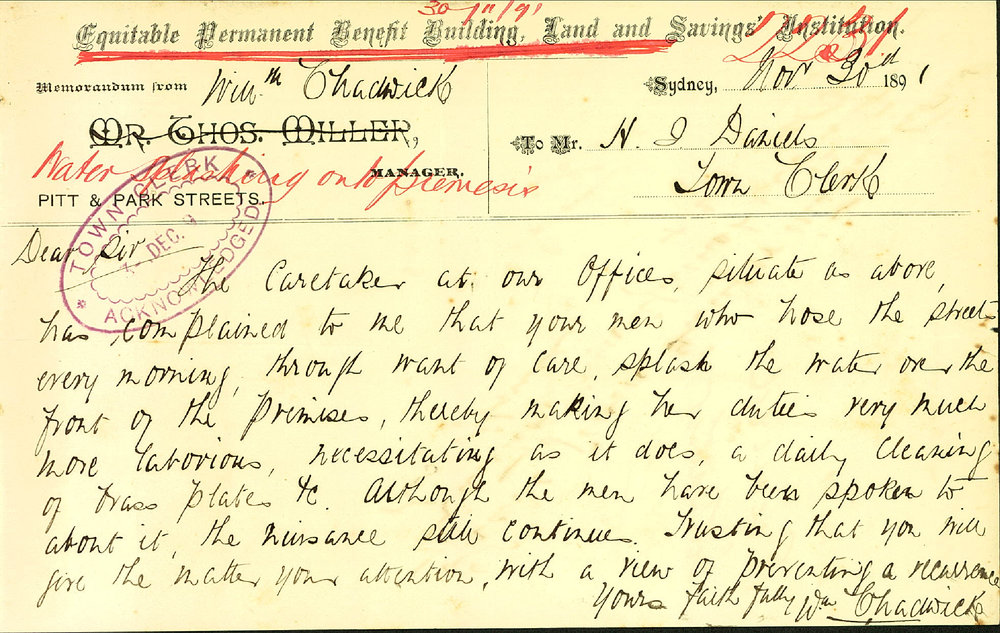 30/11/91
Equitable Permanent Benefit Building, Land and Savings' Institution.
Memorandum from Willm Chadwick
Sydney, Novr 30d 1891
MR. THOS. MILLER,
MANAGER.
To Mr. H. J Daniels
Town Clerk
Water splashing onto premesis
PITT & PARK STREETS.
TOWN CLERK
DEC. 9
ACKNOWLEDGED
Dear Sir
The Caretaker at our Offices, situate as above,
has complained to me that your men who hose the streets
every morning, through want of care, splash the water over the
front of the premises, thereby making her duties very much
more laborious, necessitating as it does, a daily cleaning
of brass plates &c. Although the men have been spoken to
about it, the nuisance still continues. Trusting that you will
give the matter your attention, with a view of preventing a recurrence
Yours faithfully Wm Chadwick